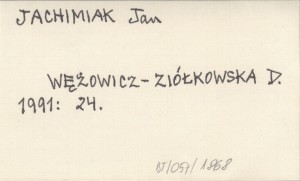 JACHIMIAK Jan
WĘŻOWICZ-ZIÓŁKOWSKA D.
1991: 24.
BJ/057/1868